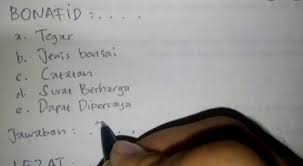 BONAFID = . . . .
a. Tegar
b. Jenis bonsai
c. Catatan
d. Surat Berharga
e. Dapat Dipercaya
Jawaban : . . . .
LEZAT